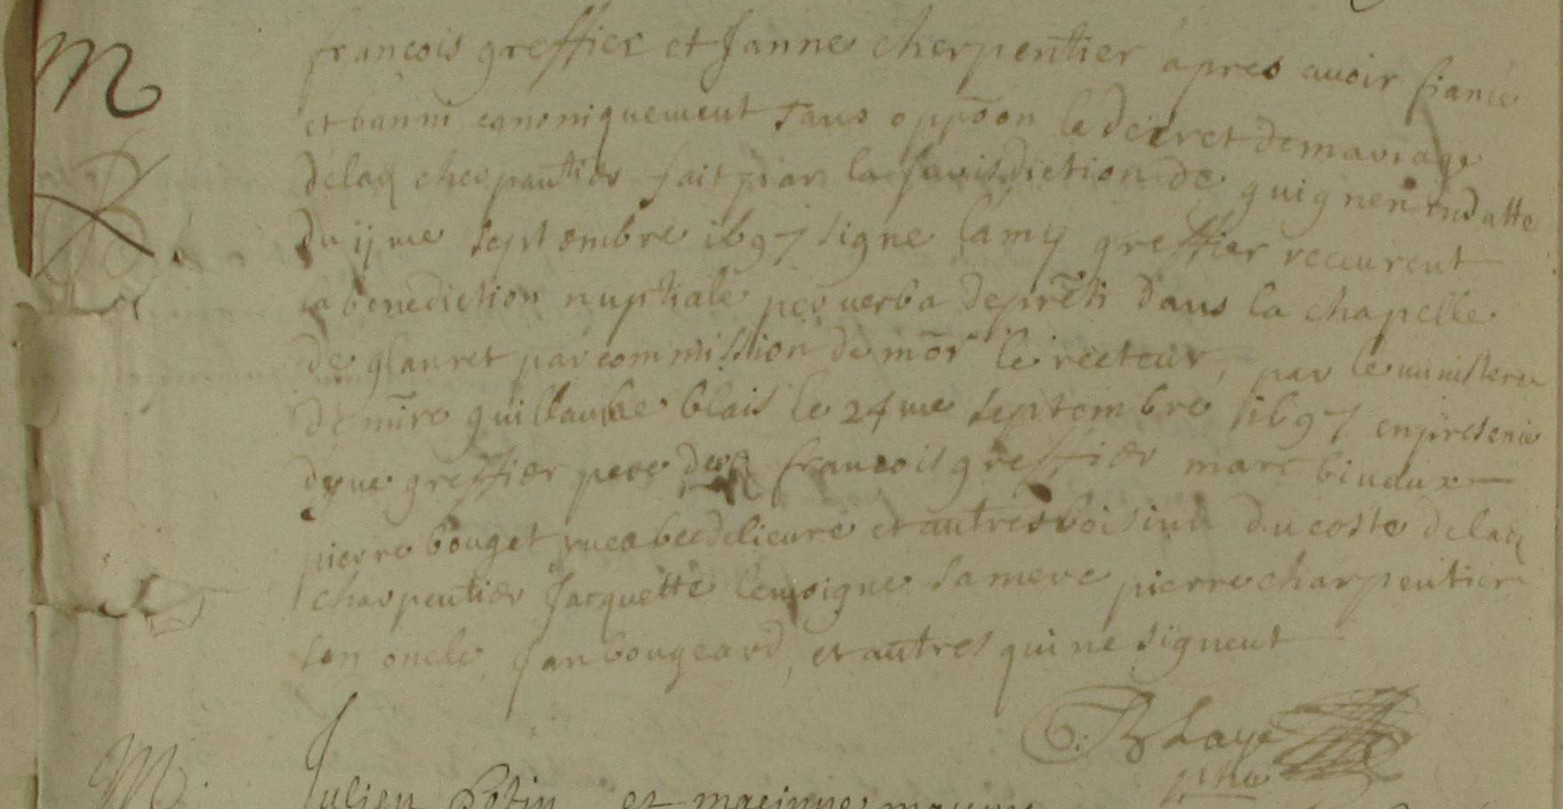 M
françois greffier et Janne cherpentier apres avoir fiancé
et banni canoniquement sans oppōon le decret de mariage
de laq cherpantier fait par la Jurisdiction de guignen en datte
du ijme septembre 1697 signe Lamy greffier receurent
la benediction nuptiale per verba de prēti dans la chapelle
de glanret par commission de mōr le recteur, par le ministere
de mīre guillaume blais le 24me septembre 1697 en presence
greffier pere françois greffier marc
pierre bouget et autres voisins du coste de laq
charpentier Jacquette lemoigne sa mere pierre charpentier
son oncle Jan bougeard, et autres qui ne signent
G: Blaye
ptre
M Julien Potin et